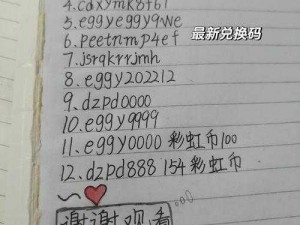 4.cdxymk8f61
最新兑换码
5.eggyeggy9ne
6.peetnmp4ef
7.jsrqkrrjmh
8.eggy202212
9.dzpd0000
10.eggy9999
11.eggy0000 彩虹币100
12.dzpd888 154彩虹币
谢谢观看